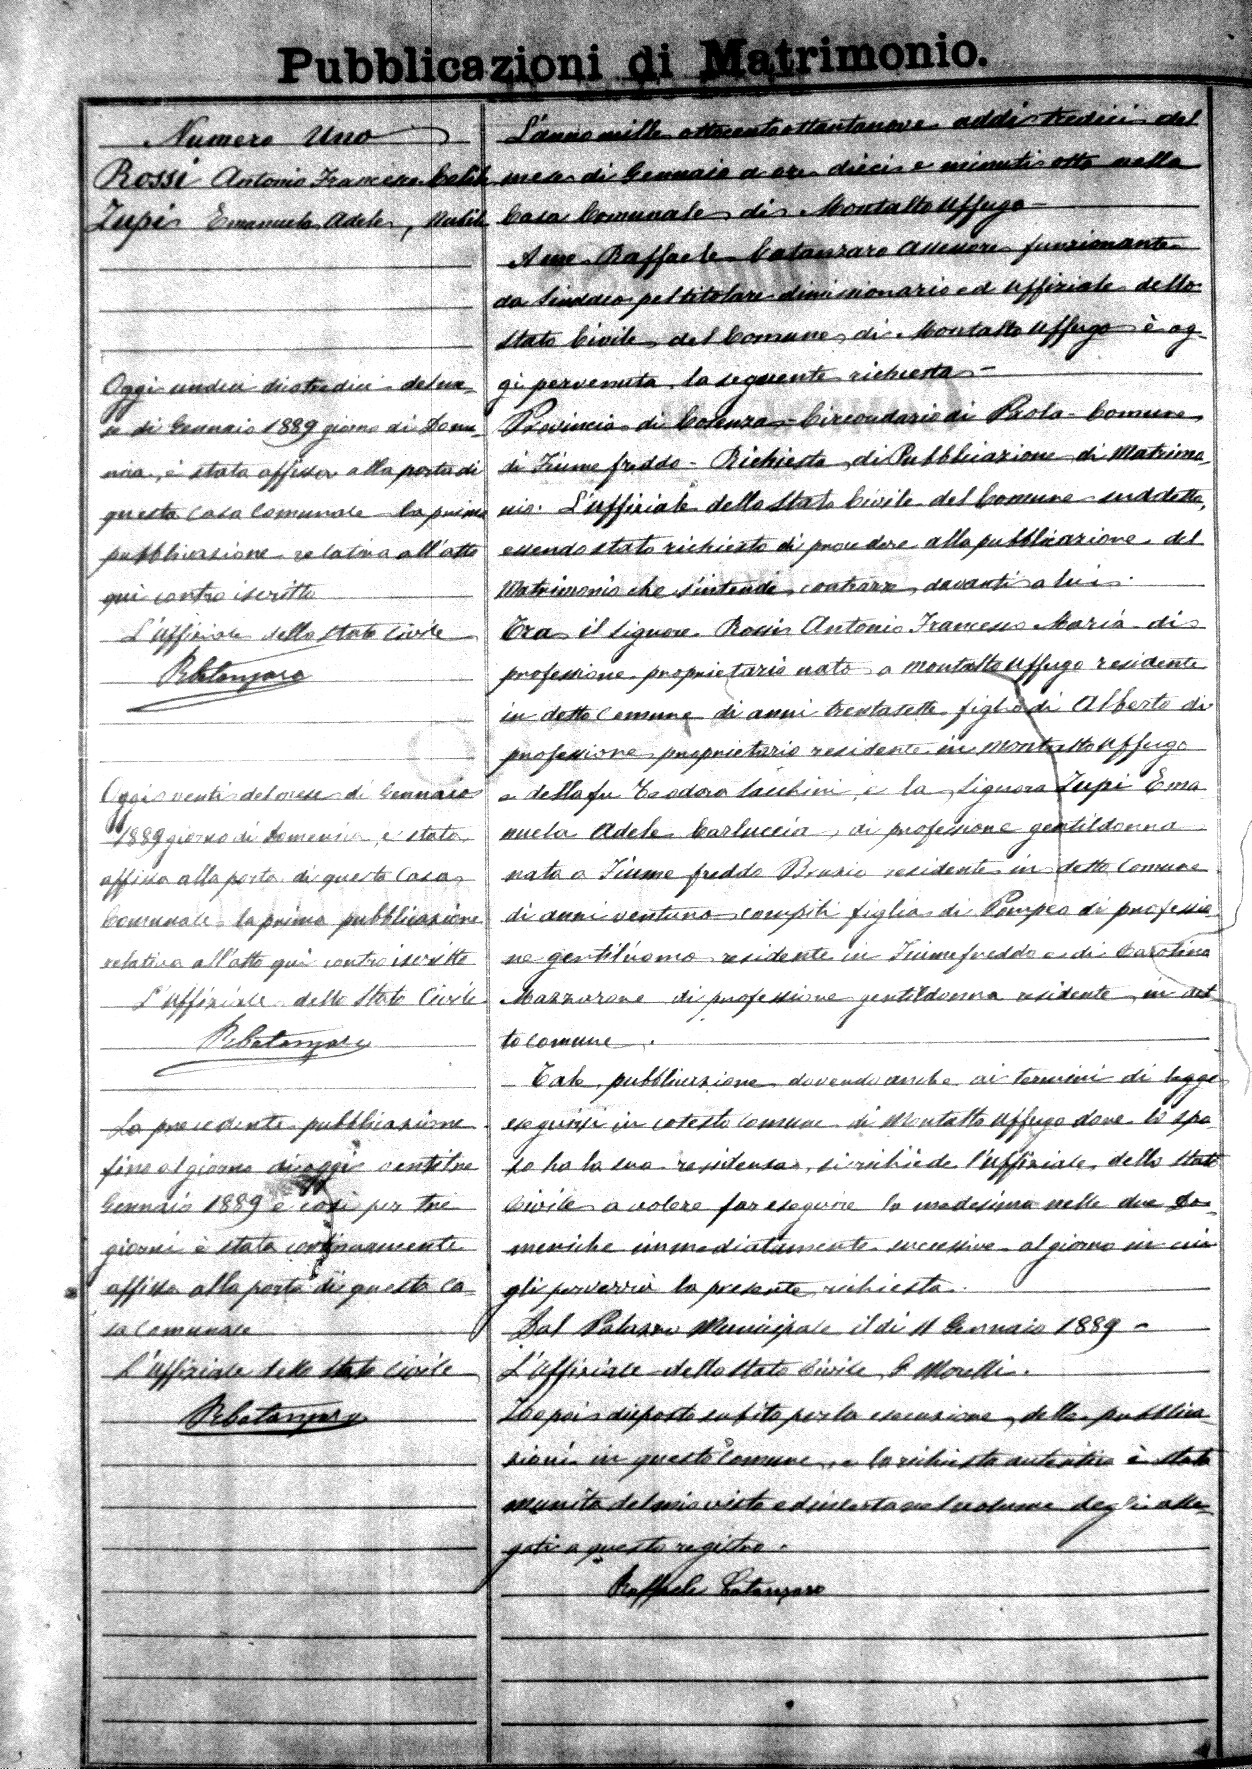 Pubblicazioni di Matrimonio.
Numero Uno
Rossi Antonio Francesco Celibe
Zupi Emanuela Adele, Nubile
Oggi tredici del me-
se di Gennaio 1889 giorno di Dome-
nica, è stata affissa alla porta di
questa casa Comunale la prima
pubblicazione relativa all'atto
qui contro iscritto
L'Uffiziale dello Stato Civile
RCatanzaro
Oggi venti del mese di Gennaio
1889 giorno di Domenica, è stata
affissa alla porta di questa Casa
Comunale la prima pubblicazione
relativa all'atto qui contro iscritto
L'Uffiziale dello Stato Civile
RCatanzaro
La precedente pubblicazione
fino al giorno di oggi ventitre
Gennaio 1889 e così per tre
giorni è stata continuamente
affissa alla porta di questa ca-
sa Comunale
L'Uffiziale dello Stato Civile
RCatanzaro
L'anno mille ottocentottantanove addì tredici del
mese di Gennaio a ore dieci e minuti otto nella
Casa Comunale di Montalto Uffugo
A me Raffaele Catanzaro Assessore funzionante
da Sindaco pel titolare dimissionario ed Uffiziale dello
Stato Civile del Comune di Montalto Uffugo è og-
gi pervenuta la seguente richiesta -
Provincia di Cosenza - Circondario di Paola - Comune
di Fiumefreddo - Richiesta di Pubblicazione di Matrimo-
nio. L'Uffiziale dello Stato Civile del Comune suddetto,
essendo stato richiesto di procedere alla pubblicazione del
Matrimonio che s'intende contrarre davanti a lui.
Tra il Signore Rossi Antonio Francesco Maria di
professione proprietario nato a Montalto Uffugo residente
in detto Comune di anni trentasette figlio di Alberto di
professione proprietario residente in Montalto Uffugo
e della fu Teodora Iacchini, e la Signora Zupi Ema
nuela Adele Carluccia, di professione gentildonna
nata a Fiumefreddo Bruzio residente in detto Comune
di anni ventuno compiti figlia di Pompeo di professio-
ne gentiluomo residente in Fiumefreddo e di Carolina
Mazzarone di professione gentildonna residente in det
to Comune.
Tale pubblicazione dovendo anche ai termini di legge
eseguirsi in cotesto Comune di Montalto Uffugo dove lo spo-
so ha la sua residenza, si richiede l'Uffiziale dello Stato
Civile a volere far eseguire la medesima nelle due Do-
meniche immediatamente successive al giorno in cui
gli perverrà la presente richiesta.
Dal Palazzo Municipale il dì 11 Gennaio 1889 -
L'Uffiziale dello Stato Civile G Morelli.
Ho poi disposto subito per la esecuzione della pubblica-
zioni in questo Comune, e la richiesta autentica è stata
munita del mio visto ed inserta nel volume degli alle-
gati a questo registro.
Raffaele Catanzaro